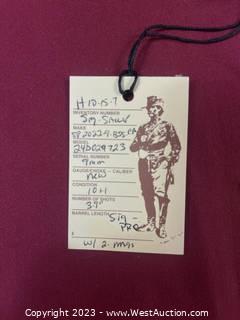 H10-15-7
INVENTORY NUMBER
MAKE
MODEL
24D029723
SERIAL NUMBER
9mm
GAUGE/CHOKE - CALIBER
NEW
CONDITION
10+1
NUMBER OF SHOTS
3.9"
BARREL LENGTH
SIG -
PRO
$
W/ 2 mags
Copyright © 2023 - www.WestAuction.com